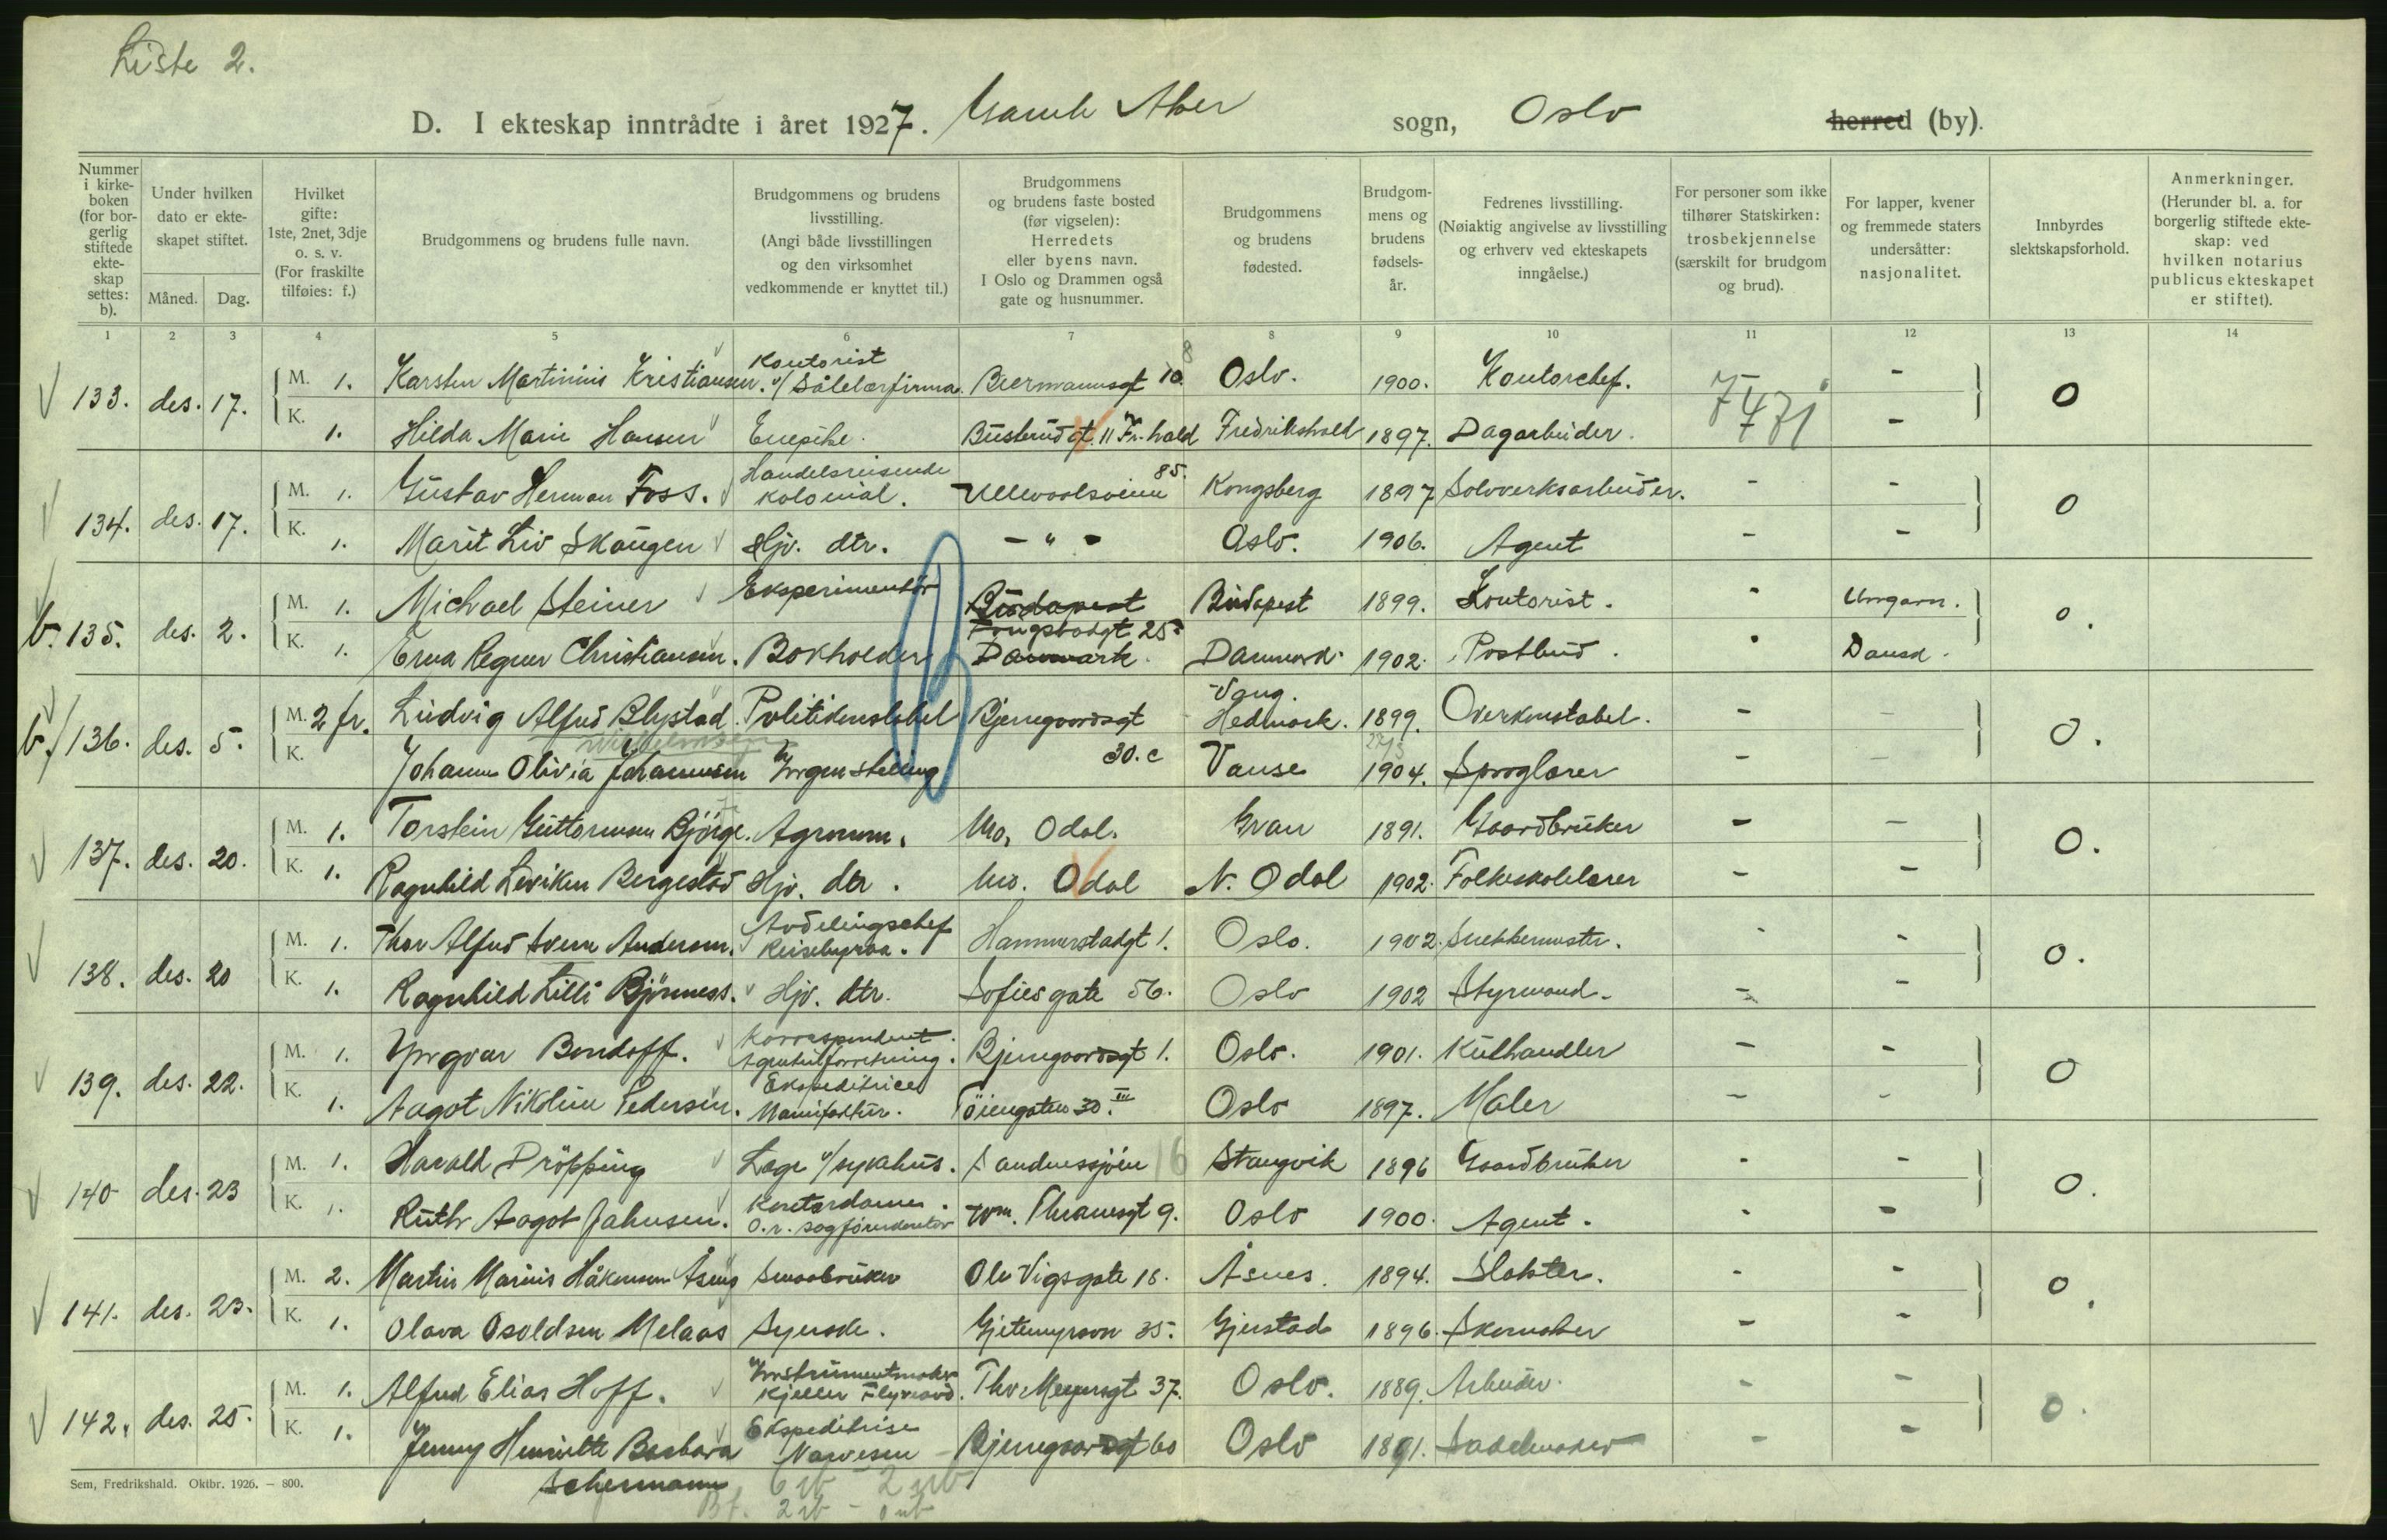 Liste 2.
D. I ekteskap inntrådte i året 1927. Gamle Aker sogn, Oslo herred (by).
Nummer i kirkeboken (for borgerlig stiftede ekteskap settes: b).
Under hvilken dato er ekteskapet stiftet.
Måned. Dag.
Hvilket gifte: 1ste, 2net, 3dje o. s. v. (For fraskilte tilføies: f.)
Brudgommens og brudens fulle navn.
Brudgommens og brudens livsstilling. (Angi både livsstillingen og den virksomhet vedkommende er knyttet til.)
Brudgommens og brudens faste bosted (før vigselen): Herredets eller byens navn. I Oslo og Drammen også gate og husnummer.
Brudgommens og brudens fødested.
Brudgommens og brudens fødselsår.
Fedrenes livsstilling. (Nøiaktig angivelse av livsstilling og erhverv ved ekteskapets inngåelse.)
For personer som ikke tilhører Statskirken: trosbekjennelse (særskilt for brudgom og brud).
For lapper, kvener og fremmede staters undersåtter: nasjonalitet.
Innbyrdes slektskapsforhold.
Anmerkninger. (Herunder bl. a. for borgerlig stiftede ekteskap: ved hvilken notarius publicus ekteskapet er stiftet).
1 2 3 4 5 6 7 8 9 10 11 12 13 14
133. des. 17. M. 1. Karsten Martinius Kristiansen. Kontorist v/ Sålelærfirma. Biermannsgt 10. 8 Oslo. 1900. Kontorchef. - 0
K. 1. Hilda Marie Hansen Enepike. Busterudgt 11 Fr.hald Fredrikshald 1897. Dagarbeider. -
7471
134. des. 17. M. 1. Gustav Herman Foss. Handelsreisende kolonial. Ullevoldsveien 85. Kongsberg 1897 Solvverksarbeider. - - 0
K. 1. Marit Liv Skaugen Hjv. dtr. - " - Oslo. 1906. Agent - -
b. 135. des. 2. M. 1. Michael Steiner Eksperimentør Budapest Budapest 1899. Kontorist. - Ungarn. 0.
K. 1. Erna Regner Christiansen. Bokholder 25 Danmark. Danmark. 1902. Postbud. - Dansk.
b. 136. des. 5. M. 2 fr. Ludvig Alfred Blystad. Politikonstabel Bjerregaardsgt Vang. Hedmark. 1899. Overkonstabel. - - 0.
K. Johanne Olivia Johannesen Ingen stilling 30.c Vanse 1904. Sproglærer - -
137. des. 20. M. 1. Torstein Guttormsen Bjørge. Agronom. Mo, Odal. Gran 1891. Gaardbruker - - 0.
K. 1. Ragnhild Leviken Bergestad Hjv. dtr. Mo. Odal N. Odal 1902. Folkeskolelærer - -
138. des. 20 M. 1. Thor Alfred Svern Andersen. Avdelingschef Reisebyraa. Hammerstadgt 1. Oslo. 1902. Snekkermester. - - 0.
K. 1. Ragnhild Lilli Bjørness. Hjv. dtr. Sofies gate 56. Oslo 1902 Styrmand. - -
139. des. 22. M. 1. Yngvar Bondoff. Korrespondent. Agenturforretning. Bjerregaardsgt 1. Oslo. 1901. Kulhandler - - 0
K. 1. Aagot Nikoline Pedersen. Ekspeditrice Manufaktur. Tøiengaten 30. III Oslo 1897. Maler - -
140 des. 23 M. 1. Harald Drøpping Læge v/ sykehus. Sandnessjøen 16 Stangvik 1896 Gaardbruker - - 0.
K. 1. Ruth Aagot Jahnsen. Kontordame. O.r. sagførerkontor Wm. Thranesgt 9. Oslo 1900. Agent. - -
141. des. 23. M. 2. Martin Marius Håkonsen Åsnes Smaabruker Ole Vigsgate 18. Åsnes. 1894. Slakter. - - 0.
K. 1. Olava Osoldsen Melaas Syerske. Gjetemyrsvn 35. Gjerstad 1896. Skomaker - -
142. des. 25. M. 1. Alfred Elias Hoff. Instrumentmaker Kjeller Flyveavd. Thv Meyersgt 37. Oslo. 1889. Arbeider. - - 0.
K. 1. Jenny Henriette Barbara Schermann Ekspeditrise Narvesen Bjerregaardsgt 60 Oslo 1891. Sadelmaker - -
Sem, Fredrikshald. Oktbr. 1926. – 800.